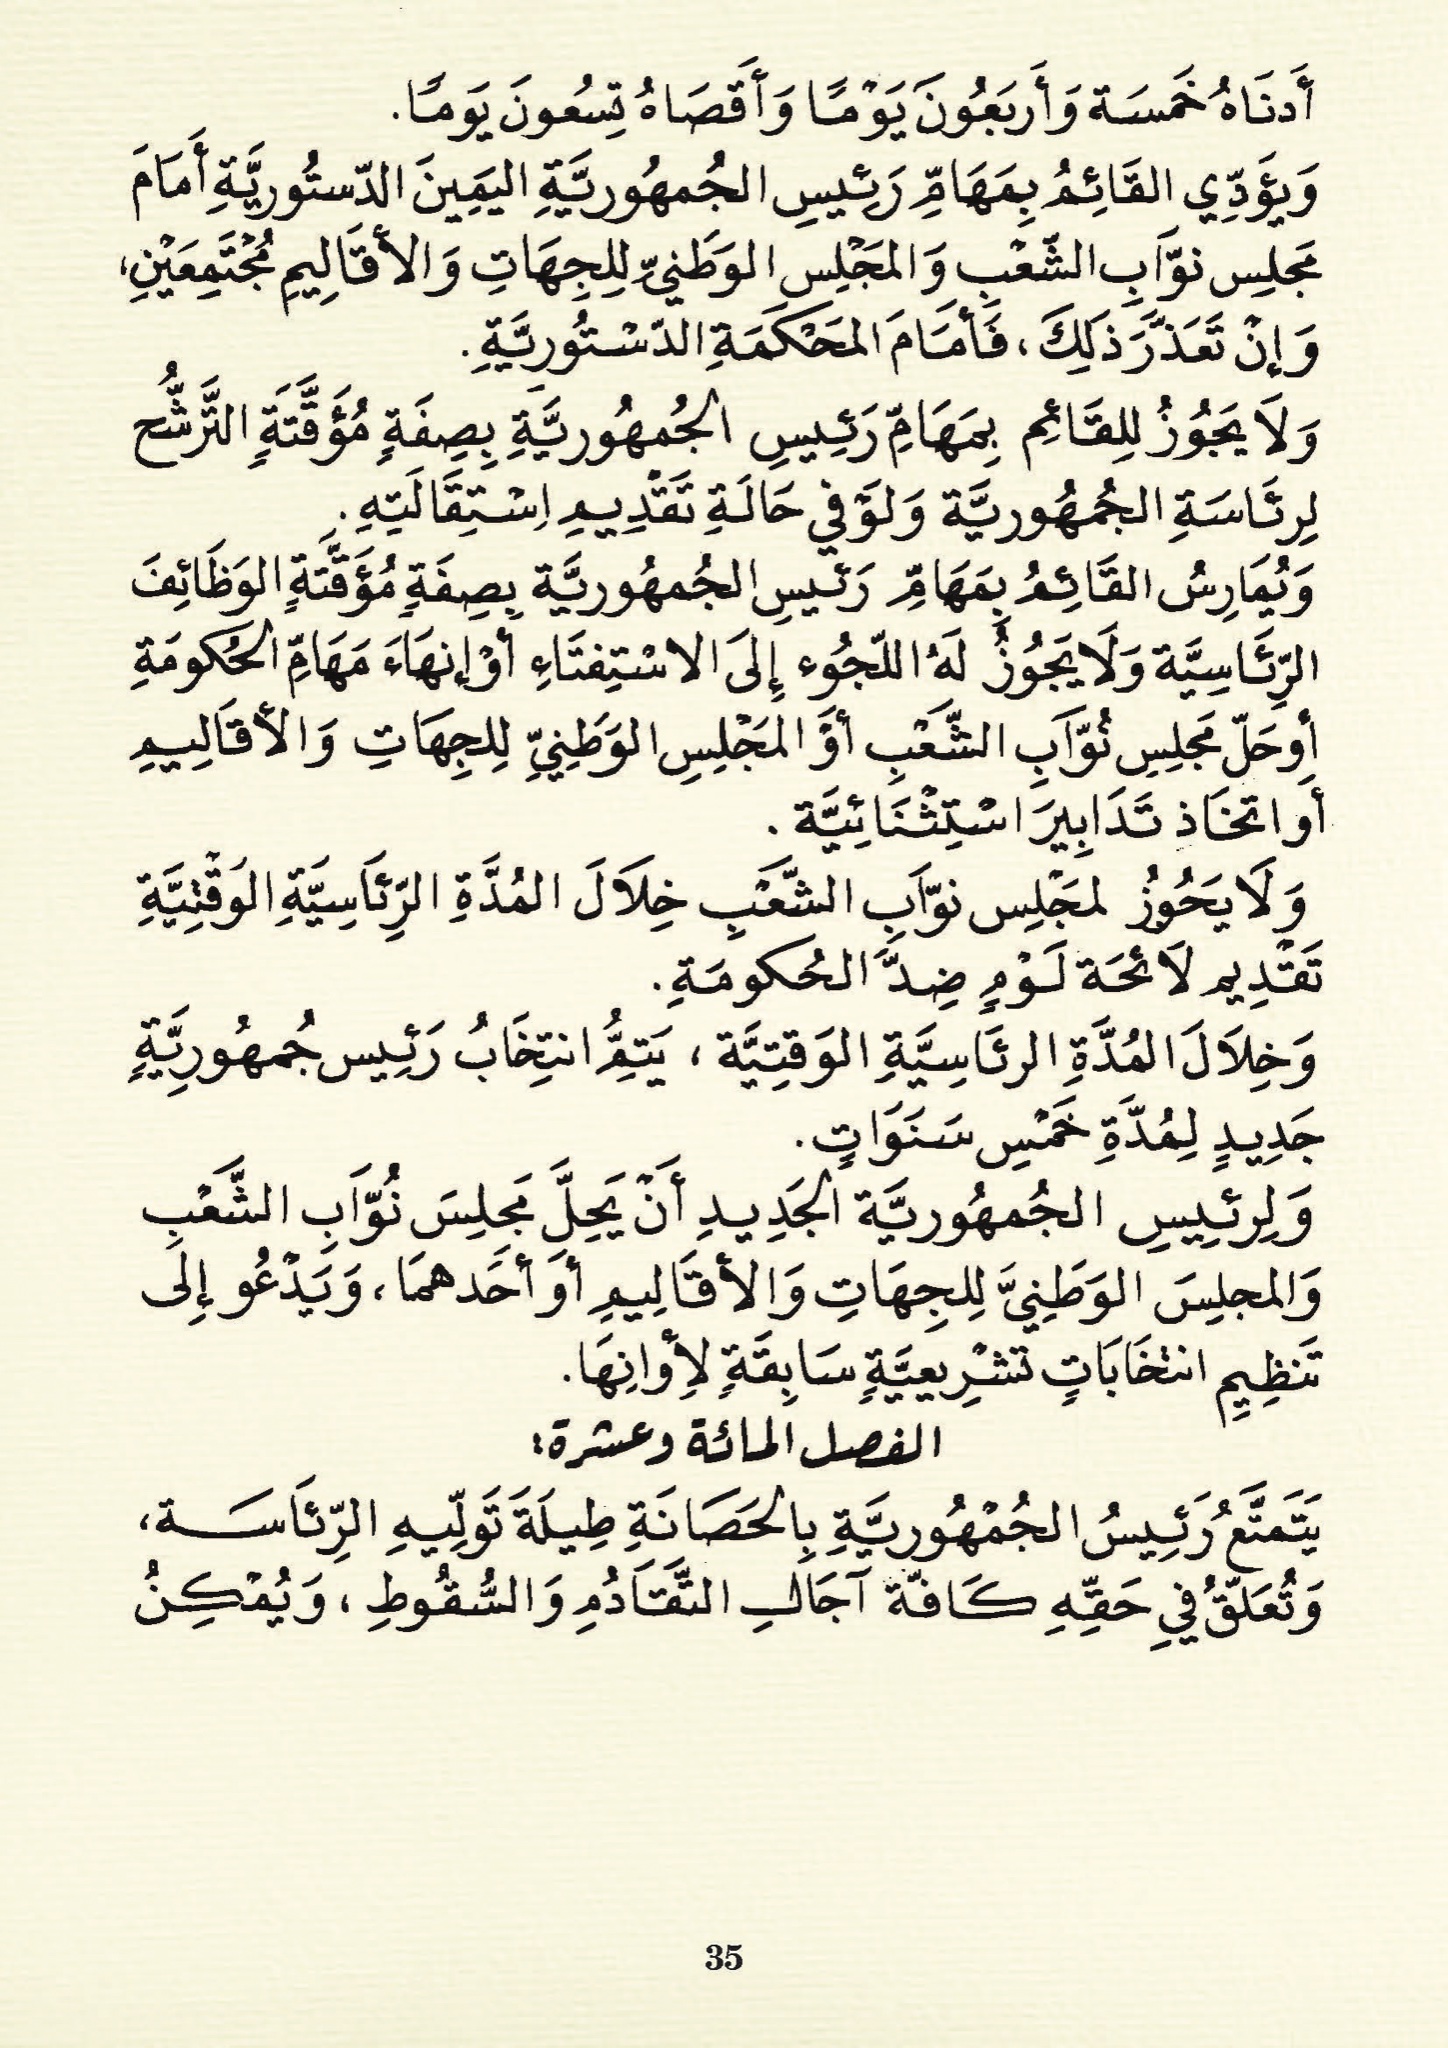 أَدنَاهُ خَمسَة وَأَربَعُونَ يَوْمًا وَأَقصَاهُ تِسعُونَ يَومًا.
وَيؤَدِّي القَائِمُ بِمَهَامِّ رَئِيسِ الجُمهُوريَّةِ اليَمِينَ الدّستُوريَّةِ أَمَامَ
مَجلِس نوّابِ الشّعْبِ وَالمَجْلِس الوَطَنيِّ لِلجِهَاتِ وَالأقَالِيمِ مُجْتَمِعَيْنِ،
وَإنْ تَعَذَّرَ ذلِكَ، فَأمَامَ المَحْكَمَةِ الدّسْتُوريَّةِ.
وَلَا يَجُوزُ لِلقَائِم بِمَهَامِّ رَئِيسِ الجُمهُوريَّةِ بِصِفَةٍ مُؤَقَّتَةٍ التَّرَشُّح
لِرئَاسَةِ الجُمهُوريَّة وَلَوْ في حَالَةِ تَقْدِيمِ اِسْتِقَالَتِهِ.
وَيُمَارِسُ القَائِمُ بِمَهَامِّ رَئيسِ الجُمهُوريَّة بِصِفَةٍ مُؤَقَّتَةٍ الوَظَائِفَ
الرِّئَاسِيَّة وَلَا يَجُوزُ لَهُ اللّجُوء إِلَى الاسْتِفتَاءِ أوْ إنهَاءَ مَهَامِّ الحُكومَةِ
أوحَلّ مَجلِسِ نُوّابِ الشَّعْبِ أوْ المَجْلِسِ الوَطَنِيِّ لِلجِهَاتِ وَالأقَالِيمِ
أو اتخَاذ تَدَابِيرَ اسْتِثْنَائِيَّة.
وَلَا يَحُوزُ لمَجْلِس نوّابِ الشَّعْبِ خِلَالَ المُدَّةِ الرِّئَاسِيَّةِ الوَقْتِيَّةِ
تَقْدِيم لَائحَة لَوْمٍ ضِدَّ الحُكومَةِ.
وَخِلَالَ المُدَّةِ الرئَاسِيَّةِ الوَقتِيَّة، يَتِمُّ انتِخَابُ رَئِيس جُمهُورِيَّةٍ
جَدِيدٍ لِمُدَّةِ خَمْسِ سَنَوَاتٍ.
وَلِرئِيسِ الجُمهُوريَّة الجَدِيدِ أَنْ يَحِلَّ مَجلِسَ نُوّابِ الشَّعْبِ
وَالمجلِسَ الوَطَنِيَّ لِلجِهَاتِ وَالأقَالِيمِ أوْ أحَدهمَا، وَيَدْعُو إِلَى
تَنظِيمِ انتخَابَاتٍ تشْرِيعيَّةٍ سَابِقَةٍ لأوانِهَا.
الفصل المائة وعشرة:
يَتَمتَّعُ رَئِيسُ الجُمْهُوريَّةِ بِالحَصَانَةِ طِيلَةَ تَولِّيهِ الرِّئَاسَة،
وَتُعَلَّقُ فيِ حَقِّهِ كَافّة آجَالِ التَّقَادُمِ وَالسُّقُوطِ، وَيُمْكِنُ
35